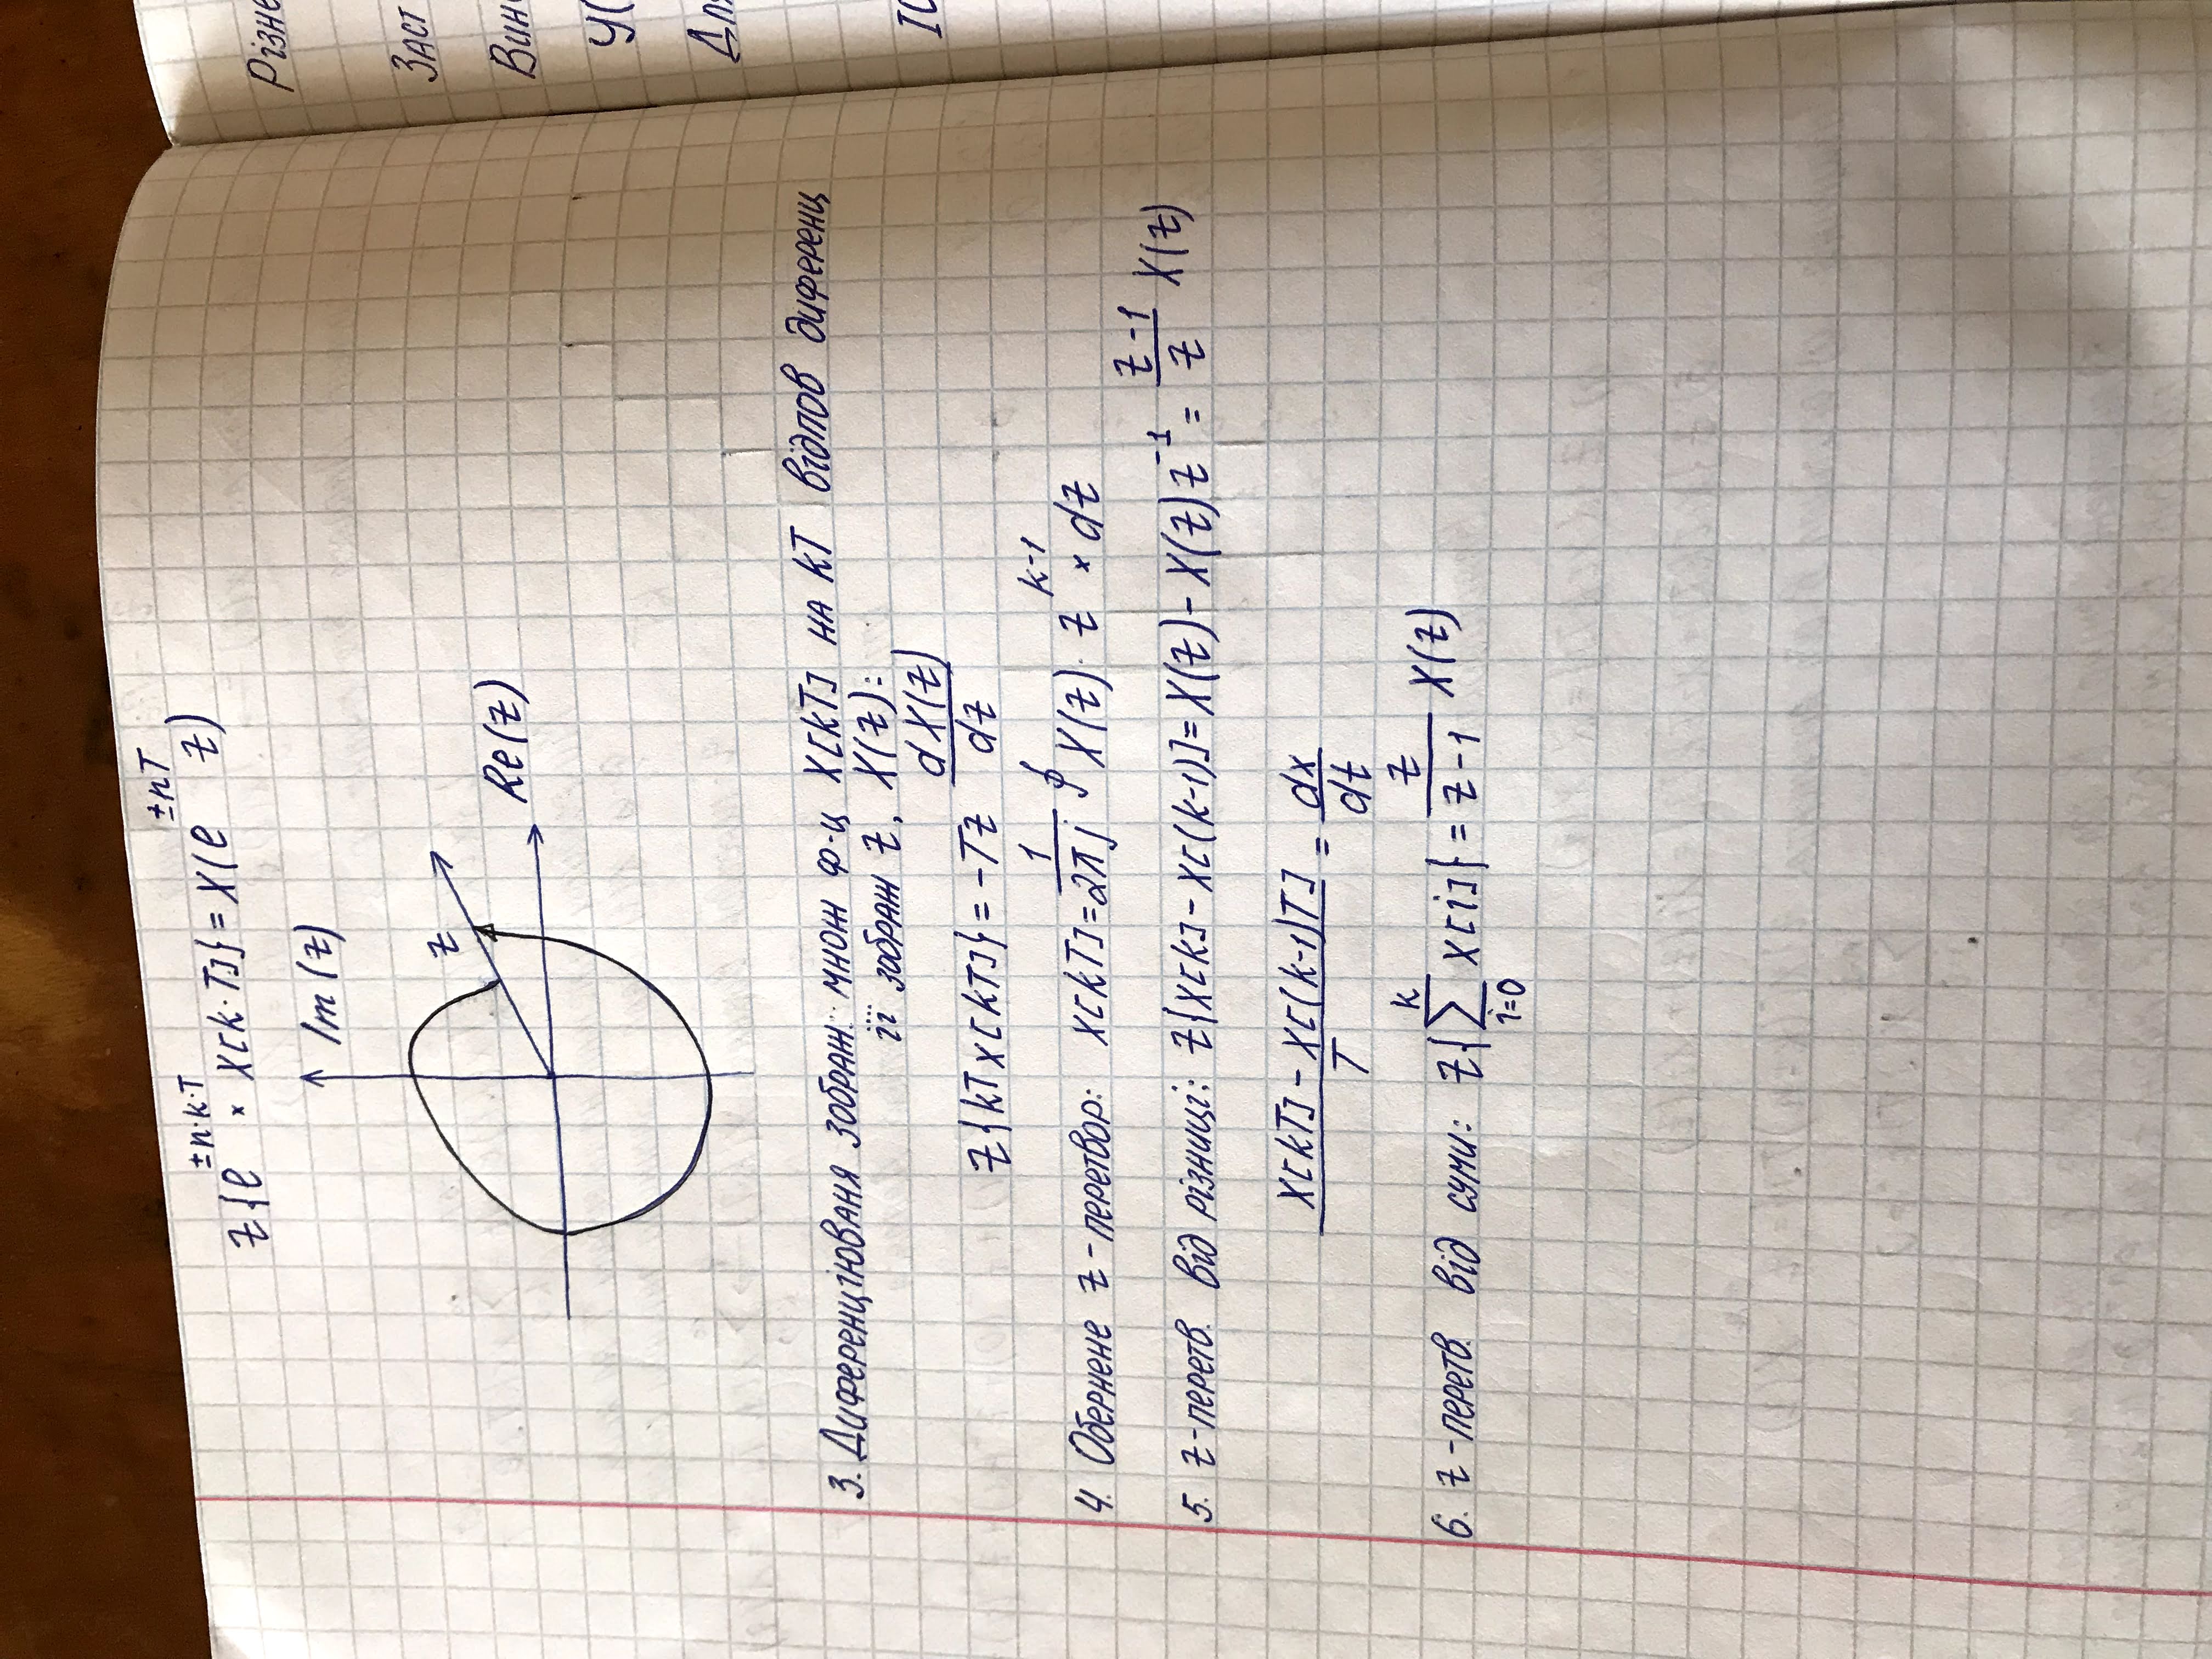 z{e^{±n·k·T} × X[k·T]} = X(e^{±nT} z)
Im(z)
z
Re(z)
3. Диференціюваня зображ: множ ф-ц X[kT] на kT відпов диференц
її зображ z, X(z):
z{kTx[kT]} = -Tz dX(z)/dz
4. Обернене z-перетвор: x[kT] = 1/2πj ∮ X(z)· z^{k-1} × dz
5. z-перетв. від різниці: z{x[k] - x[(k-1)] = X(z) - X(z)z^{-1} = z-1/z X(z)
X[kT] - X[(k-1)T]/T = dx/dt
6. z-перетв. від суми: z{∑_{i=0}^{k} x[i]} = z/z-1 X(z)
Різне
Заст
Вин
У(
Для